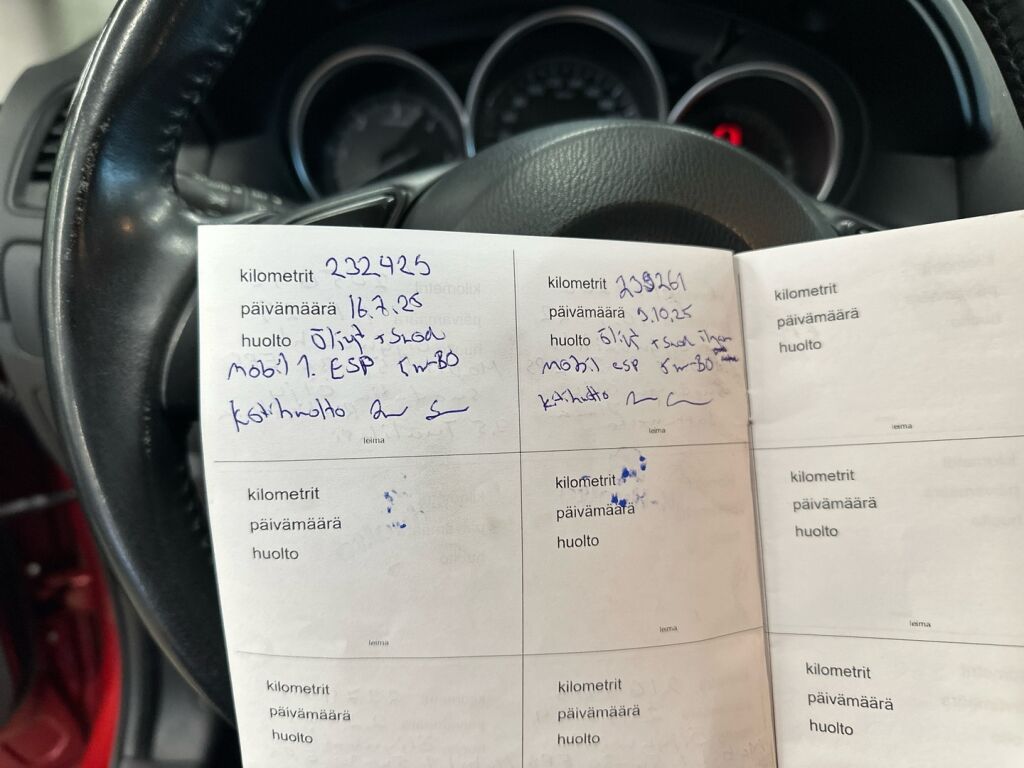 kilometrit 232425
päivämäärä 16.7.25
huolto Öljyt + Suod
Mobil 1. ESP 5w-30
Kotihuolto
leima
kilometrit 239261
päivämäärä 9.10.25
huolto Öljyt + Suod ilman
Mobil ESP 5w-30
Kotihuolto
leima
kilometrit
päivämäärä
huolto
leima
kilometrit
päivämäärä
huolto
leima
kilometrit
päivämäärä
huolto
leima
kilometrit
päivämäärä
huolto
leima
kilometrit
päivämäärä
huolto
kilometrit
päivämäärä
huolto
kilometrit
päivämäärä
huolto